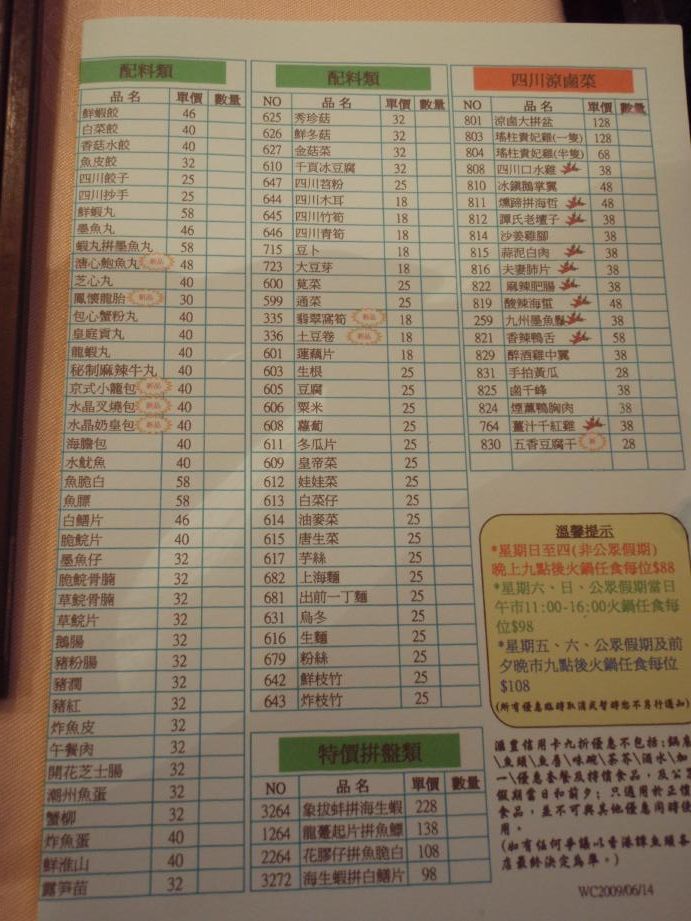 配料類
品名 單價 數量
鮮蝦餃 46
白菜餃 40
香菇水餃 40
魚皮餃 32
四川餃子 25
四川抄手 25
鮮蝦丸 58
墨魚丸 46
蝦丸拼墨魚丸 58
溏心鮑魚丸 新品 48
芝心丸 40
鳳懷龍胎 新品 30
包心蟹粉丸 40
皇庭貢丸 40
龍蝦丸 40
秘制麻辣牛丸 40
京式小籠包 新品 40
水晶叉燒包 新品 40
水晶奶皇包 新品 40
海膽包 40
水魷魚 40
魚脆白 58
魚膘 58
白鱔片 46
脆鯇片 40
墨魚仔 32
脆鯇骨腩 32
草鯇骨腩 32
草鯇片 32
鵝腸 32
豬粉腸 32
豬潤 32
豬紅 32
炸魚皮 32
午餐肉 32
開花芝士腸 32
潮州魚蛋 32
蟹柳 32
炸魚蛋 40
鮮淮山 40
露笋苗 32
配料類
NO 品名 單價 數量
625 秀珍菇 32
626 鮮冬菇 32
627 金菇菜 32
610 千頁冰豆腐 32
647 四川苕粉 25
644 四川木耳 18
645 四川竹筍 18
646 四川青筍 18
715 豆卜 18
723 大豆芽 18
600 莧菜 25
599 通菜 25
335 翡翠窩筍 新品 18
336 土豆卷 新品 18
601 蓮藕片 18
603 生根 25
605 豆腐 25
606 粟米 25
608 蘿蔔 25
611 冬瓜片 25
609 皇帝菜 25
612 娃娃菜 25
613 白菜仔 25
614 油麥菜 25
615 唐生菜 25
617 芋絲 25
682 上海麵 25
681 出前一丁麵 25
631 烏冬 25
616 生麵 25
679 粉絲 25
642 鮮枝竹 25
643 炸枝竹 25
特價拼盤類
NO 品名 單價 數量
3264 象拔蚌拼海生蝦 228
1264 龍躉起片拼魚鰾 138
2264 花膠仔拼魚脆白 108
3272 海生蝦拼白鱔片 98
四川涼鹵菜
NO 品名 單價 數量
801 涼鹵大拼盆 128
803 瑤柱貴妃雞(一隻) 128
804 瑤柱貴妃雞(半隻) 68
808 四川口水雞 38
810 冰鎮鵝掌翼 48
811 燻蹄拼海哲 48
812 譚氏老壇子 38
814 沙姜雞腳 38
815 蒜泥白肉 38
816 夫妻肺片 38
822 麻辣肥腸 38
819 酸辣海蜇 48
259 九州墨魚鬚 38
821 香辣鴨舌 58
829 醉酒雞中翼 38
831 手拍黃瓜 28
825 鹵千峰 38
824 煙薰鴨胸肉 38
764 薑汁千紅雞 38
830 五香豆腐干 新 28
溫馨提示
*星期日至四(非公眾假期)
晚上九點後火鍋任食每位$88
*星期六、日、公眾假期當日
午市11:00-16:00火鍋任食每
位$98
*星期五、六、公眾假期及前
夕晚市九點後火鍋任食每位
$108
(所有優惠臨時取消或暫時恕不另行通知)
滙豐信用卡九折優惠不包括:鍋底
\魚頭\魚唇\味碗\茶芥\酒水\加
一\優惠套餐及特價食品,及公眾
假期當日和前夕;只適用於正價
食品,並不可與其他優惠同時使
用。
(如有任何爭議以香港譚魚頭各
店最終決定為準。)
WC2009/06/14